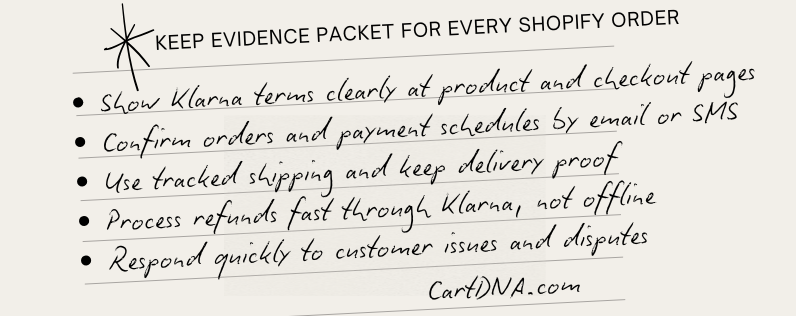 KEEP EVIDENCE PACKET FOR EVERY SHOPIFY ORDER
• Show Klarna terms clearly at product and checkout pages
• Confirm orders and payment schedules by email or SMS
• Use tracked shipping and keep delivery proof
• Process refunds fast through Klarna, not offline
• Respond quickly to customer issues and disputes
CartDNA.com